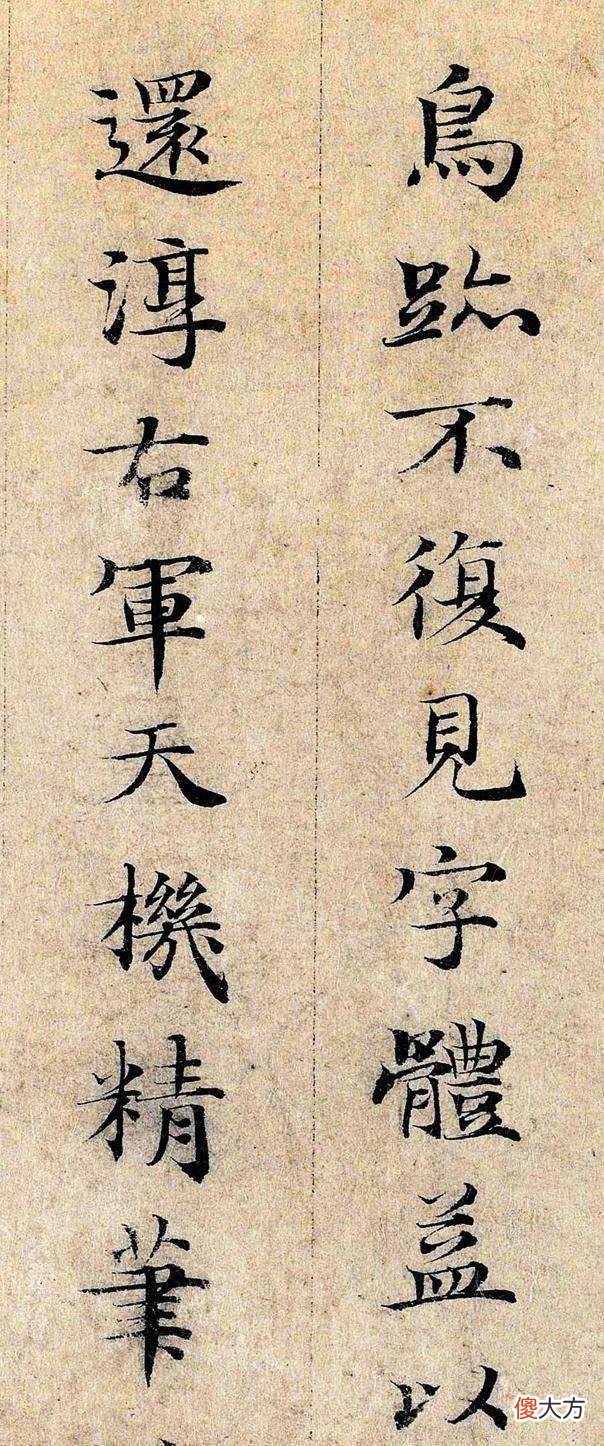 鳥跡不復見字體益以
還淳右軍天機精筆
傻大方